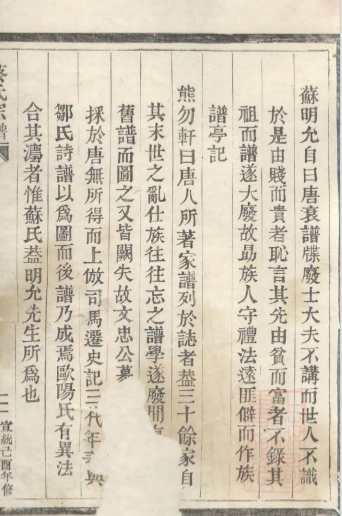 蘇明允自曰唐衰譜牒廢士大夫不講而世人不識
於是由賤而貴者恥言其先由貧而富者不錄其
祖而譜遂大廢故勗族人守禮法遠匪僻而作族
譜亭記
熊勿軒曰唐人所著家譜列於誌者葢三十餘家自
其末世之亂仕族往往忘之譜學遂廢間有
舊譜而圖之又皆闕失故文忠公慕
採於唐無所得而上倣司馬遷史記三代年表與
鄒氏詩譜以爲圖而後譜乃成焉歐陽氏有異法
合其灋者惟蘇氏葢明允先生所爲也
氏宗譜
宣統己酉年修